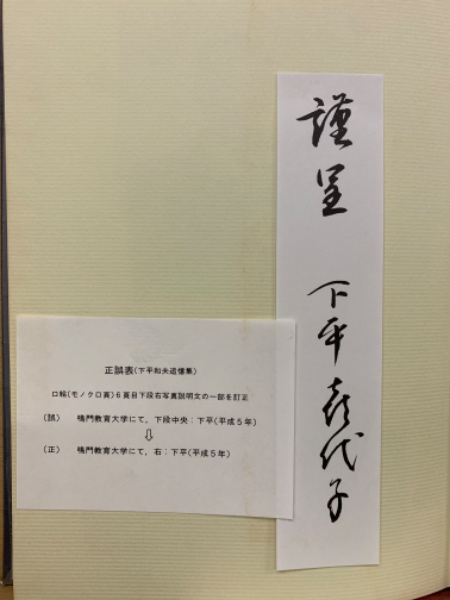 謹呈 下平喜代子
正誤表(下平和夫追憶集)
口絵(モノクロ頁)6頁目下段右写真説明文の一部を訂正
(誤) 鳴門教育大学にて，下段中央：下平(平成5年)
⇩
(正) 鳴門教育大学にて，右：下平(平成5年)